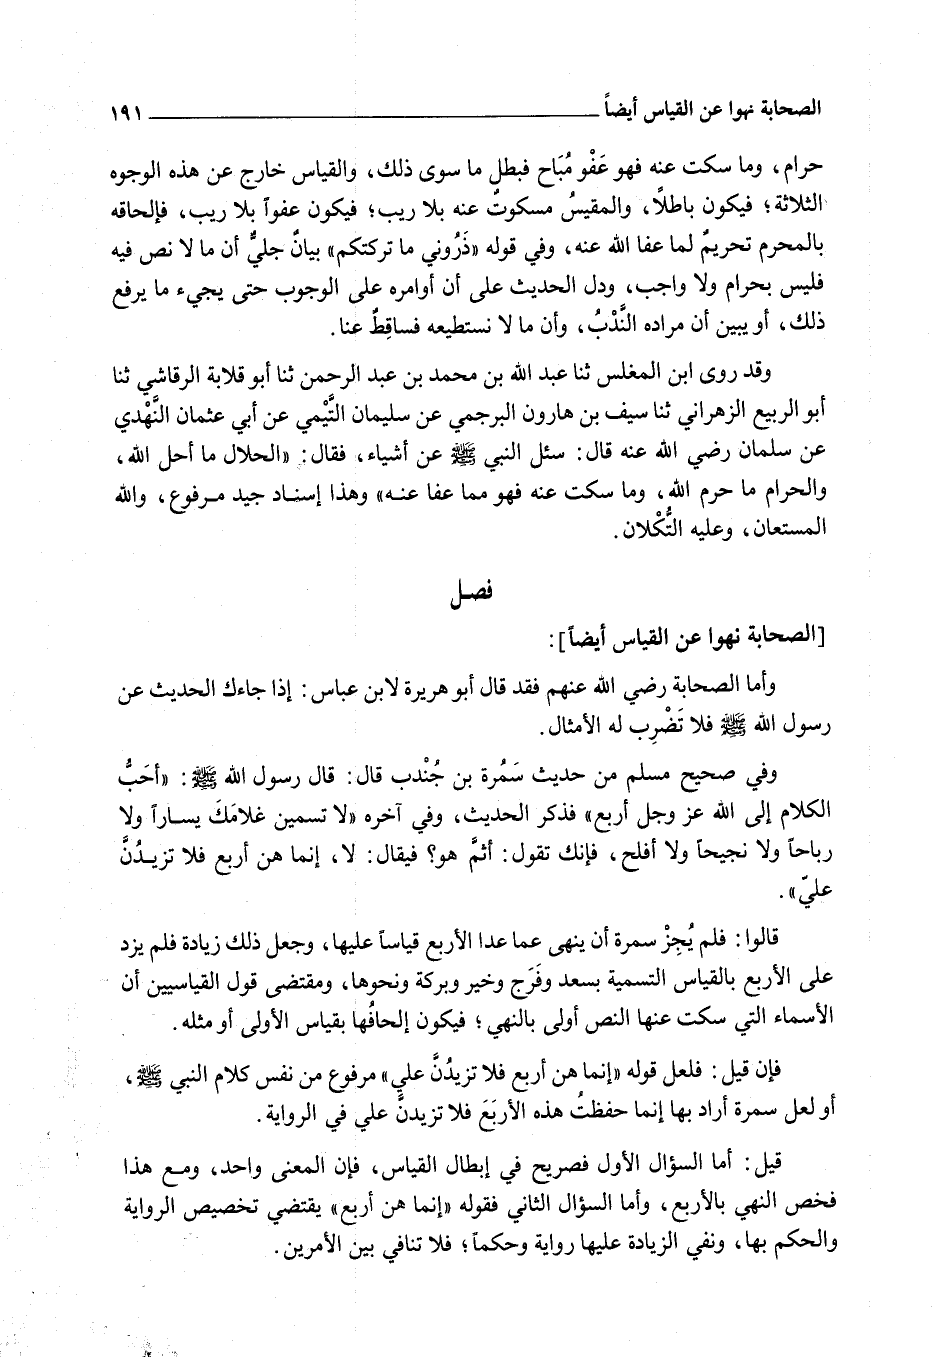 الصحابة نهوا عن القياس أيضاً ١٩١
حرام، وما سكت عنه فهو عَفْو مُبَاح فبطل ما سوى ذلك، والقياس خارج عن هذه الوجوه
الثلاثة؛ فيكون باطلًا، والمقيسُ مسكوتٌ عنه بلا ريب؛ فيكون عفواً بلا ريب، فإلحاقه
بالمحرم تحريمٌ لما عفا الله عنه، وفي قوله «ذَرُوني ما تركتكم» بيانٌ جليٌّ أن ما لا نص فيه
فليس بحرام ولا واجب، ودل الحديث على أن أوامره على الوجوب حتى يجيء ما يرفع
ذلك، أو يبين أن مراده النَّدْبُ، وأن ما لا نستطيعه فساقِطٌ عنا.
وقد روى ابن المغلس ثنا عبد الله بن محمد بن عبد الرحمن ثنا أبو قلابة الرقاشي ثنا
أبو الربيع الزهراني ثنا سيف بن هارون البرجمي عن سليمان التَّيْمي عن أبي عثمان النَّهْدي
عن سلمان رضي الله عنه قال: سئل النبي ﷺ عن أشياء، فقال: «الحلال ما أحل الله،
والحرام ما حرم الله، وما سكت عنه فهو مما عفا عنه» وهذا إسناد جيد مرفوع، والله
المستعان، وعليه التُّكْلان.
فصل
[الصحابة نهوا عن القياس أيضاً]:
وأما الصحابة رضي الله عنهم فقد قال أبو هريرة لابن عباس: إذا جاءك الحديث عن
رسول الله ﷺ فلا تَضْرِب له الأمثال.
وفي صحيح مسلم من حديث سَمُرة بن جُنْدب قال: قال رسول الله ﷺ: «أحَبُّ
الكلام إلى الله عز وجل أربع» فذكر الحديث، وفي آخره «لا تسمين غلامَكَ يساراً ولا
رباحاً ولا نجيحاً ولا أفلح، فإنك تقول: أثمَّ هو؟ فيقال: لا، إنما هن أربع فلا تزيدُنَّ
عليّ».
قالوا: فلم يُجِزْ سمرة أن ينهى عما عدا الأربع قياساً عليها، وجعل ذلك زيادة فلم يزد
على الأربع بالقياس التسمية بسعد وفَرَج وخير وبركة ونحوها، ومقتضى قول القياسيين أن
الأسماء التي سكت عنها النص أولى بالنهي؛ فيكون إلحاقُها بقياس الأولى أو مثله.
فإن قيل: فلعل قوله «إنما هن أربع فلا تزيدُنَّ علي» مرفوع من نفس كلام النبي ﷺ،
أو لعل سمرة أراد بها إنما حفظتُ هذه الأربَعَ فلا تزيدنَّ علي في الرواية.
قيل: أما السؤال الأول فصريح في إبطال القياس، فإن المعنى واحد، ومع هذا
فخص النهي بالأربع، وأما السؤال الثاني فقوله «إنما هن أربع» يقتضي تخصيص الرواية
والحكم بها، ونفي الزيادة عليها رواية وحكماً؛ فلا تنافي بين الأمرين.